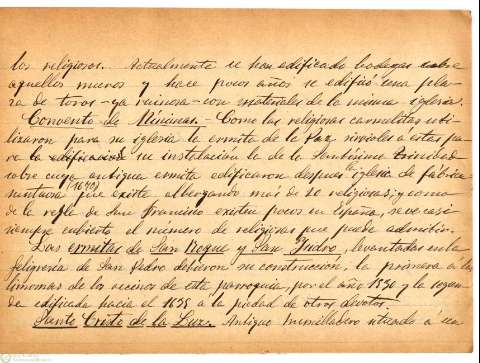 los religiosos. Actualmente se han edificado bodegas sobre
aquellos muros y hace pocos años se edificó una pla-
za de toros - ya ruinosa - con materiales de la misma iglesia.
Convento de Mínimas. - Como las religiosas carmelitas uti-
lizaron para su iglesia la ermita de la Paz sirvioles á estas pa-
ra su instalación la de la Santísima Trinidad
sobre cuya antigua ermita edificaron despues la iglesia de fabrica
suntuosa (1670) que existe albergando más de 20 religiosas; y como
de la regla de San Francisco existen pocos en España, se ve casi
siempre cubierto el número de religiosas que puede admitir.
Las ermitas de San Roque y San Isidro, levantadas en la
feligresia de San Pedro debieron su construcción, la primera á las
limosnas de los vecinos de esta parroquia, por el año 1590 y la segun-
da edificada hacia el 1635 a la piedad de otros devotos.
Santo Cristo de la Luz. Antiguo humilladero situado á